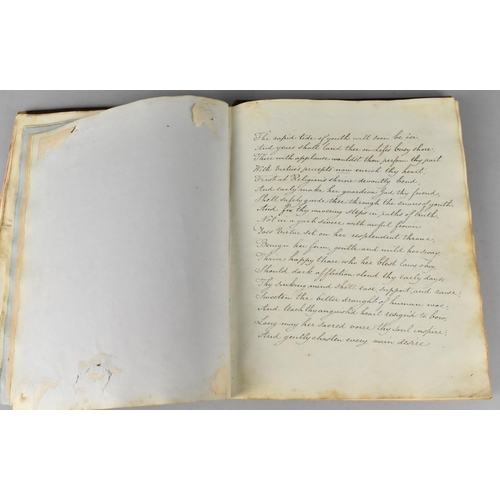 The rapid tide of youth will soon be o'er
And years shall land thee on life's busy shore
There with applause wouldst thou perform thy part
With Virtue's precepts now enrich thy heart
First at Religions shrine devoutly bend
And early make her guardian God thy friend,
Shall safely guide thee through the snares of youth
And fix thy wavering steps in paths of truth,
Not in a garb severe with awful frown
Does Virtue sit on her resplendent throne;
Benign her form, gentle and mild her sway
Them happy those who her blest laws obey
Should dark affliction cloud thy early days
Thy sinking mind she'll ease, support, and raise;
Sweeten the bitter draught of human woe,
And teach thy anguish'd heart resign'd to bow,
Long may her sacred voice thy soul inspire,
And gently chasten every warm desire